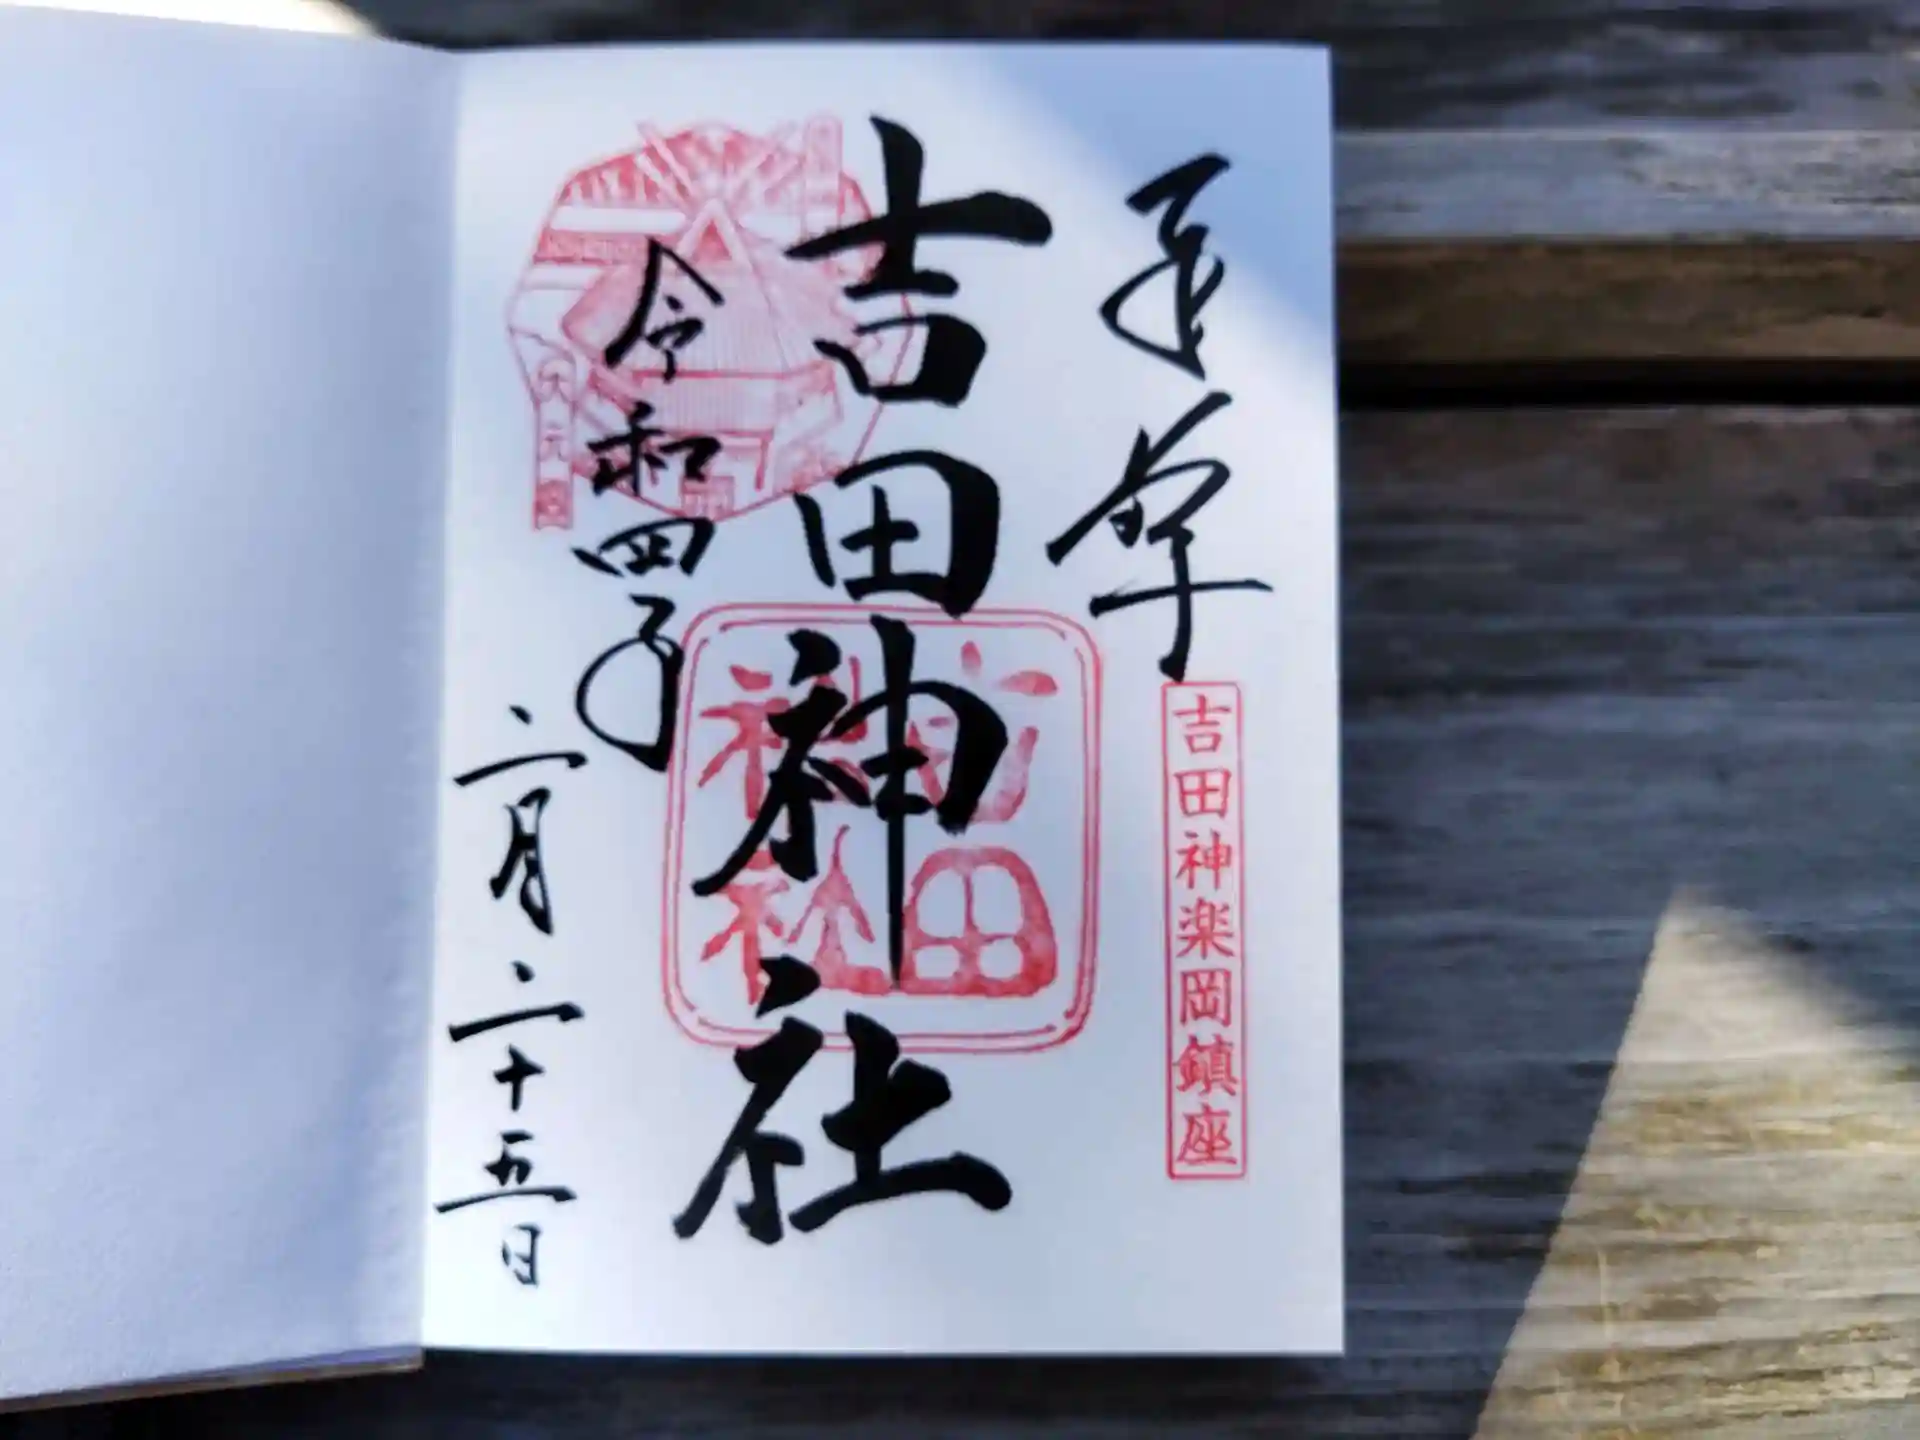 奉拝
吉田神楽岡鎮座
吉田神社
吉田
神社
令和四年
二月二十五日
大元宮